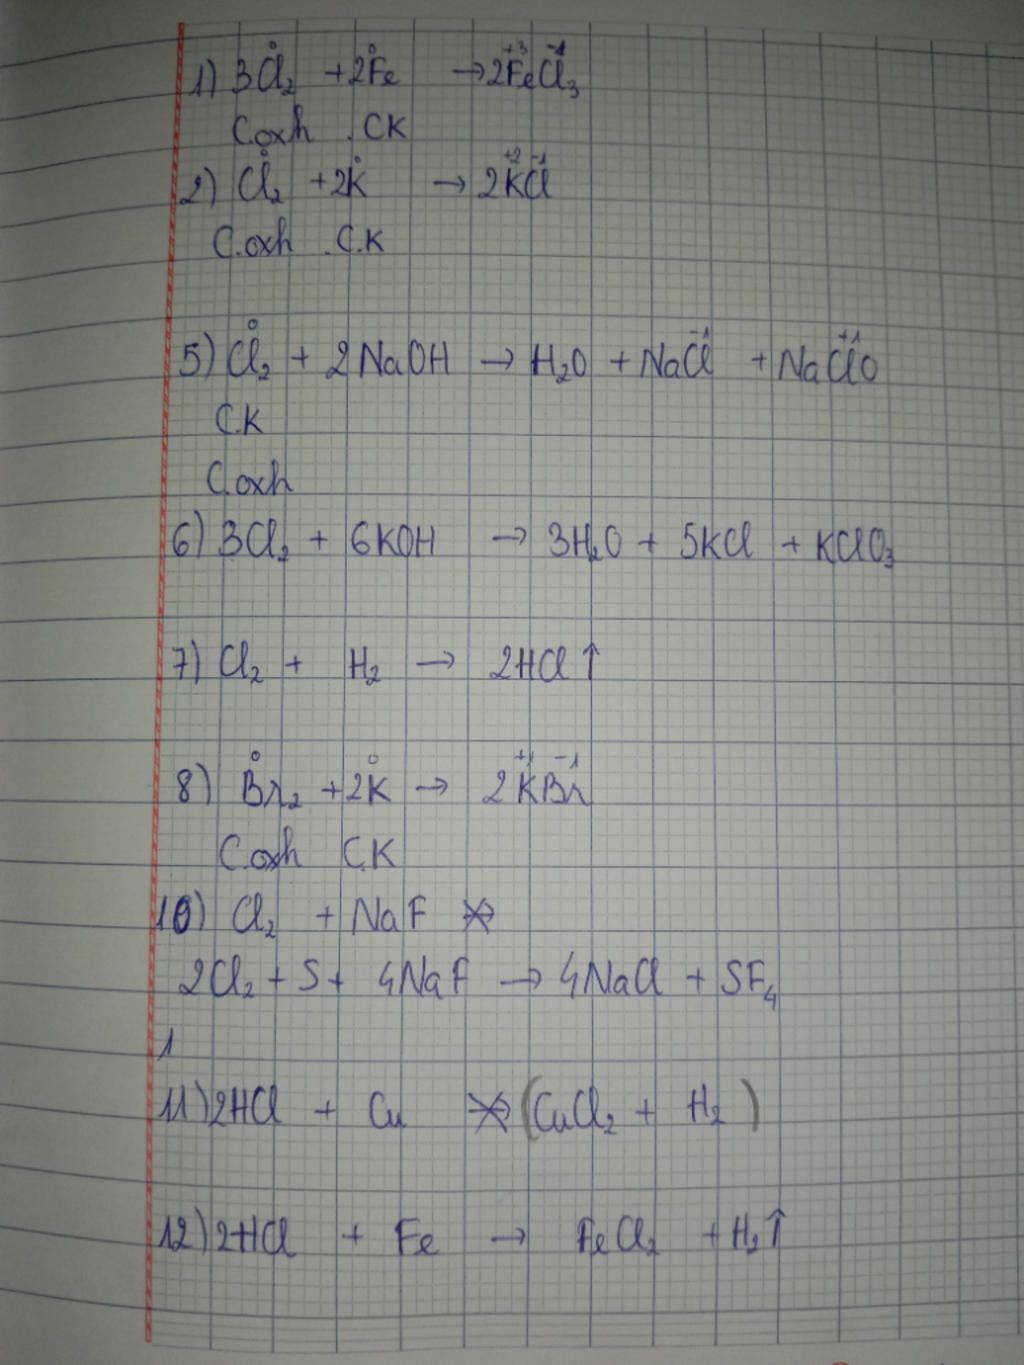 0 0 +3 -1
1) 3Cl₂ + 2Fe → 2FeCl₃
C.oxh . CK
0 0 +2 -1
2) Cl₂ + 2K → 2KCl
C.oxh . C.K
0 -1 +1
5) Cl₂ + 2NaOH → H₂O + NaCl + NaClO
C.K
C.oxh
6) 3Cl₂ + 6KOH → 3H₂O + 5KCl + KClO₃
7) Cl₂ + H₂ → 2HCl ↑
0 0 +1 -1
8) Br₂ + 2K → 2KBr
C.oxh C.K
10) Cl₂ + NaF ↛
2Cl₂ + S + 4NaF → 4NaCl + SF₄
1
11) 2HCl + Cu ↛ (CuCl₂ + H₂)
12) 2HCl + Fe → FeCl₂ + H₂ ↑